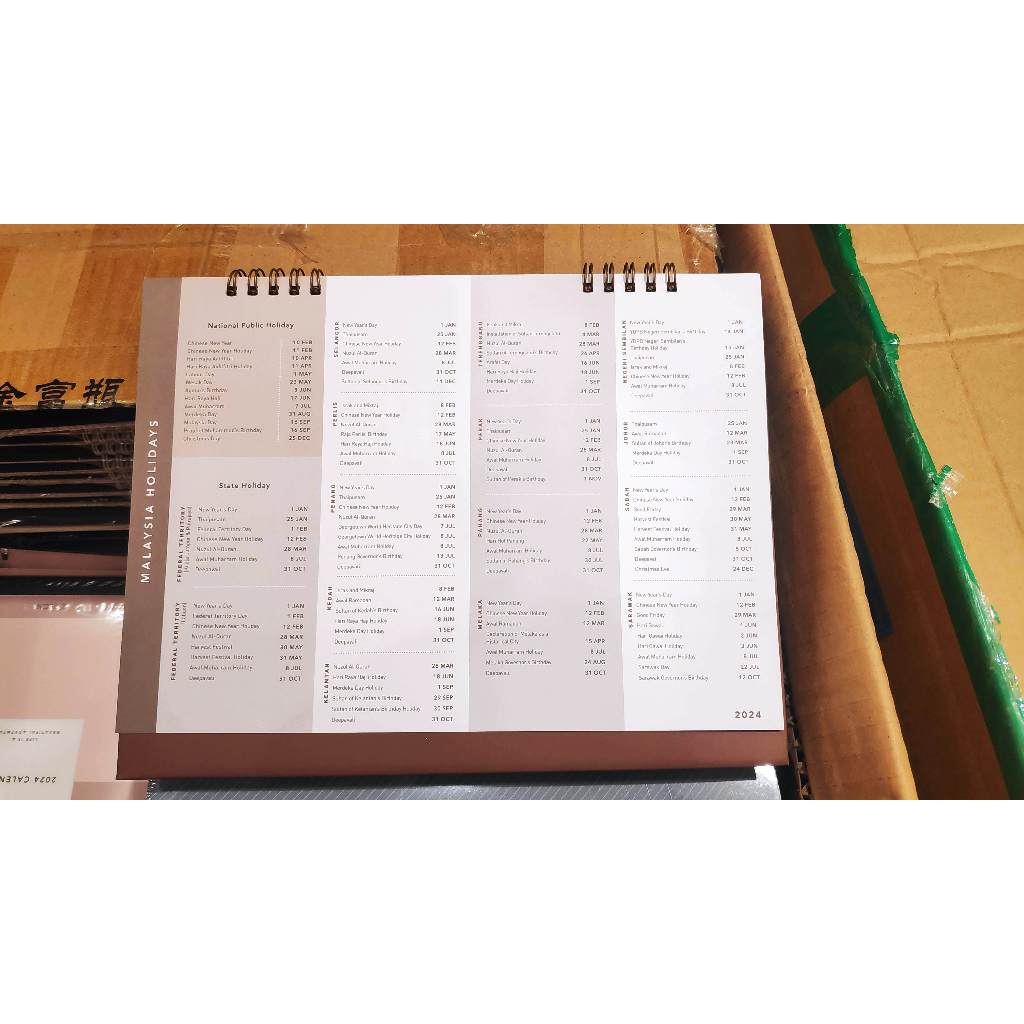 MALAYSIA HOLIDAYS
National Public Holiday
Chinese New Year 10 FEB
Chinese New Year Holiday 11 FEB
Hari Raya Aidilfitri 10 APR
Hari Raya Aidilfitri Holiday 11 APR
Labour Day 1 MAY
Wesak Day 22 MAY
Agong's Birthday 3 JUN
Hari Raya Haji 17 JUN
Awal Muharram 7 JUL
Merdeka Day 31 AUG
Malaysia Day 16 SEP
Prophet Muhammad's Birthday 16 SEP
Christmas Day 25 DEC
State Holiday
FEDERAL TERRITORY
New Year's Day 1 JAN
Thaipusam 25 JAN
Federal Territory Day 1 FEB
Chinese New Year Holiday 12 FEB
Nuzul Al-Quran 28 MAR
Awal Muharram Holiday 8 JUL
Deepavali 31 OCT
FEDERAL TERRITORY
(Labuan)
New Year's Day 1 JAN
Federal Territory Day 1 FEB
Chinese New Year Holiday 12 FEB
Nuzul Al-Quran 28 MAR
Harvest Festival 30 MAY
Harvest Festival Holiday 31 MAY
Awal Muharram Holiday 8 JUL
Deepavali 31 OCT
SELANGOR
New Year's Day 1 JAN
Thaipusam 25 JAN
Chinese New Year Holiday 12 FEB
Nuzul Al-Quran 28 MAR
Awal Muharram Holiday 8 JUL
Deepavali 31 OCT
Sultan of Selangor's Birthday 11 DEC
PERLIS
Israk and Mikraj 8 FEB
Chinese New Year Holiday 12 FEB
Nuzul Al-Quran 28 MAR
Raja Perlis' Birthday 17 MAY
Hari Raya Haji Holiday 18 JUN
Awal Muharram Holiday 8 JUL
Deepavali 31 OCT
PENANG
New Year's Day 1 JAN
Thaipusam 25 JAN
Chinese New Year Holiday 12 FEB
Nuzul Al-Quran 28 MAR
Georgetown World Heritage City Day 7 JUL
Georgetown World Heritage City Holiday 8 JUL
Awal Muharram Holiday 8 JUL
Penang Governor's Birthday 13 JUL
Deepavali 31 OCT
KEDAH
Israk and Mikraj 8 FEB
Awal Ramadan 12 MAR
Sultan of Kedah's Birthday 16 JUN
Hari Raya Haji Holiday 18 JUN
Merdeka Day Holiday 1 SEP
Deepavali 31 OCT
KELANTAN
Nuzul Al-Quran 28 MAR
Hari Raya Haji Holiday 18 JUN
Merdeka Day Holiday 1 SEP
Sultan of Kelantan's Birthday 29 SEP
Sultan of Kelantan's Birthday Holiday 30 SEP
Deepavali 31 OCT
TERENGGANU
Israk and Mikraj 8 FEB
4 MAR
Nuzul Al-Quran 28 MAR
Sultan of Terengganu's Birthday 26 APR
Arafat Day 16 JUN
Hari Raya Haji Holiday 18 JUN
Merdeka Day Holiday 1 SEP
Deepavali 31 OCT
PERAK
New Year's Day 1 JAN
Thaipusam 25 JAN
Chinese New Year Holiday 12 FEB
Nuzul Al-Quran 28 MAR
Awal Muharram Holiday 8 JUL
Deepavali 31 OCT
Sultan of Perak's Birthday 1 NOV
PAHANG
New Year's Day 1 JAN
Chinese New Year Holiday 12 FEB
Nuzul Al-Quran 28 MAR
Hari Hol Pahang 22 MAY
Awal Muharram Holiday 8 JUL
Sultan of Pahang's Birthday 30 JUL
Deepavali 31 OCT
MELAKA
New Year's Day 1 JAN
Chinese New Year Holiday 12 FEB
Awal Ramadan 12 MAR
Declaration of Melaka as a
Historical City 15 APR
Awal Muharram Holiday 8 JUL
Melaka Governor's Birthday 24 AUG
Deepavali 31 OCT
NEGERI SEMBILAN
New Year's Day 1 JAN
YDPB Negeri Sembilan's Birthday 14 JAN
YDPB Negeri Sembilan's
Birthday Holiday 15 JAN
Thaipusam 25 JAN
Israk and Mikraj 8 FEB
Chinese New Year Holiday 12 FEB
Awal Muharram Holiday 8 JUL
Deepavali 31 OCT
JOHOR
Thaipusam 25 JAN
Awal Ramadan 12 MAR
Sultan of Johor's Birthday 23 MAR
Merdeka Day Holiday 1 SEP
Deepavali 31 OCT
SABAH
New Year's Day 1 JAN
Chinese New Year Holiday 12 FEB
Good Friday 29 MAR
Harvest Festival 30 MAY
Harvest Festival Holiday 31 MAY
Awal Muharram Holiday 8 JUL
Sabah Governor's Birthday 5 OCT
Deepavali 31 OCT
Christmas Eve 24 DEC
SARAWAK
New Year's Day 1 JAN
Chinese New Year Holiday 12 FEB
Good Friday 29 MAR
Hari Gawai 1 JUN
Hari Gawai Holiday 2 JUN
Hari Gawai Holiday 3 JUN
Awal Muharram Holiday 8 JUL
Sarawak Day 22 JUL
Sarawak Governor's Birthday 12 OCT
2024
富瓶
2024 CALEN